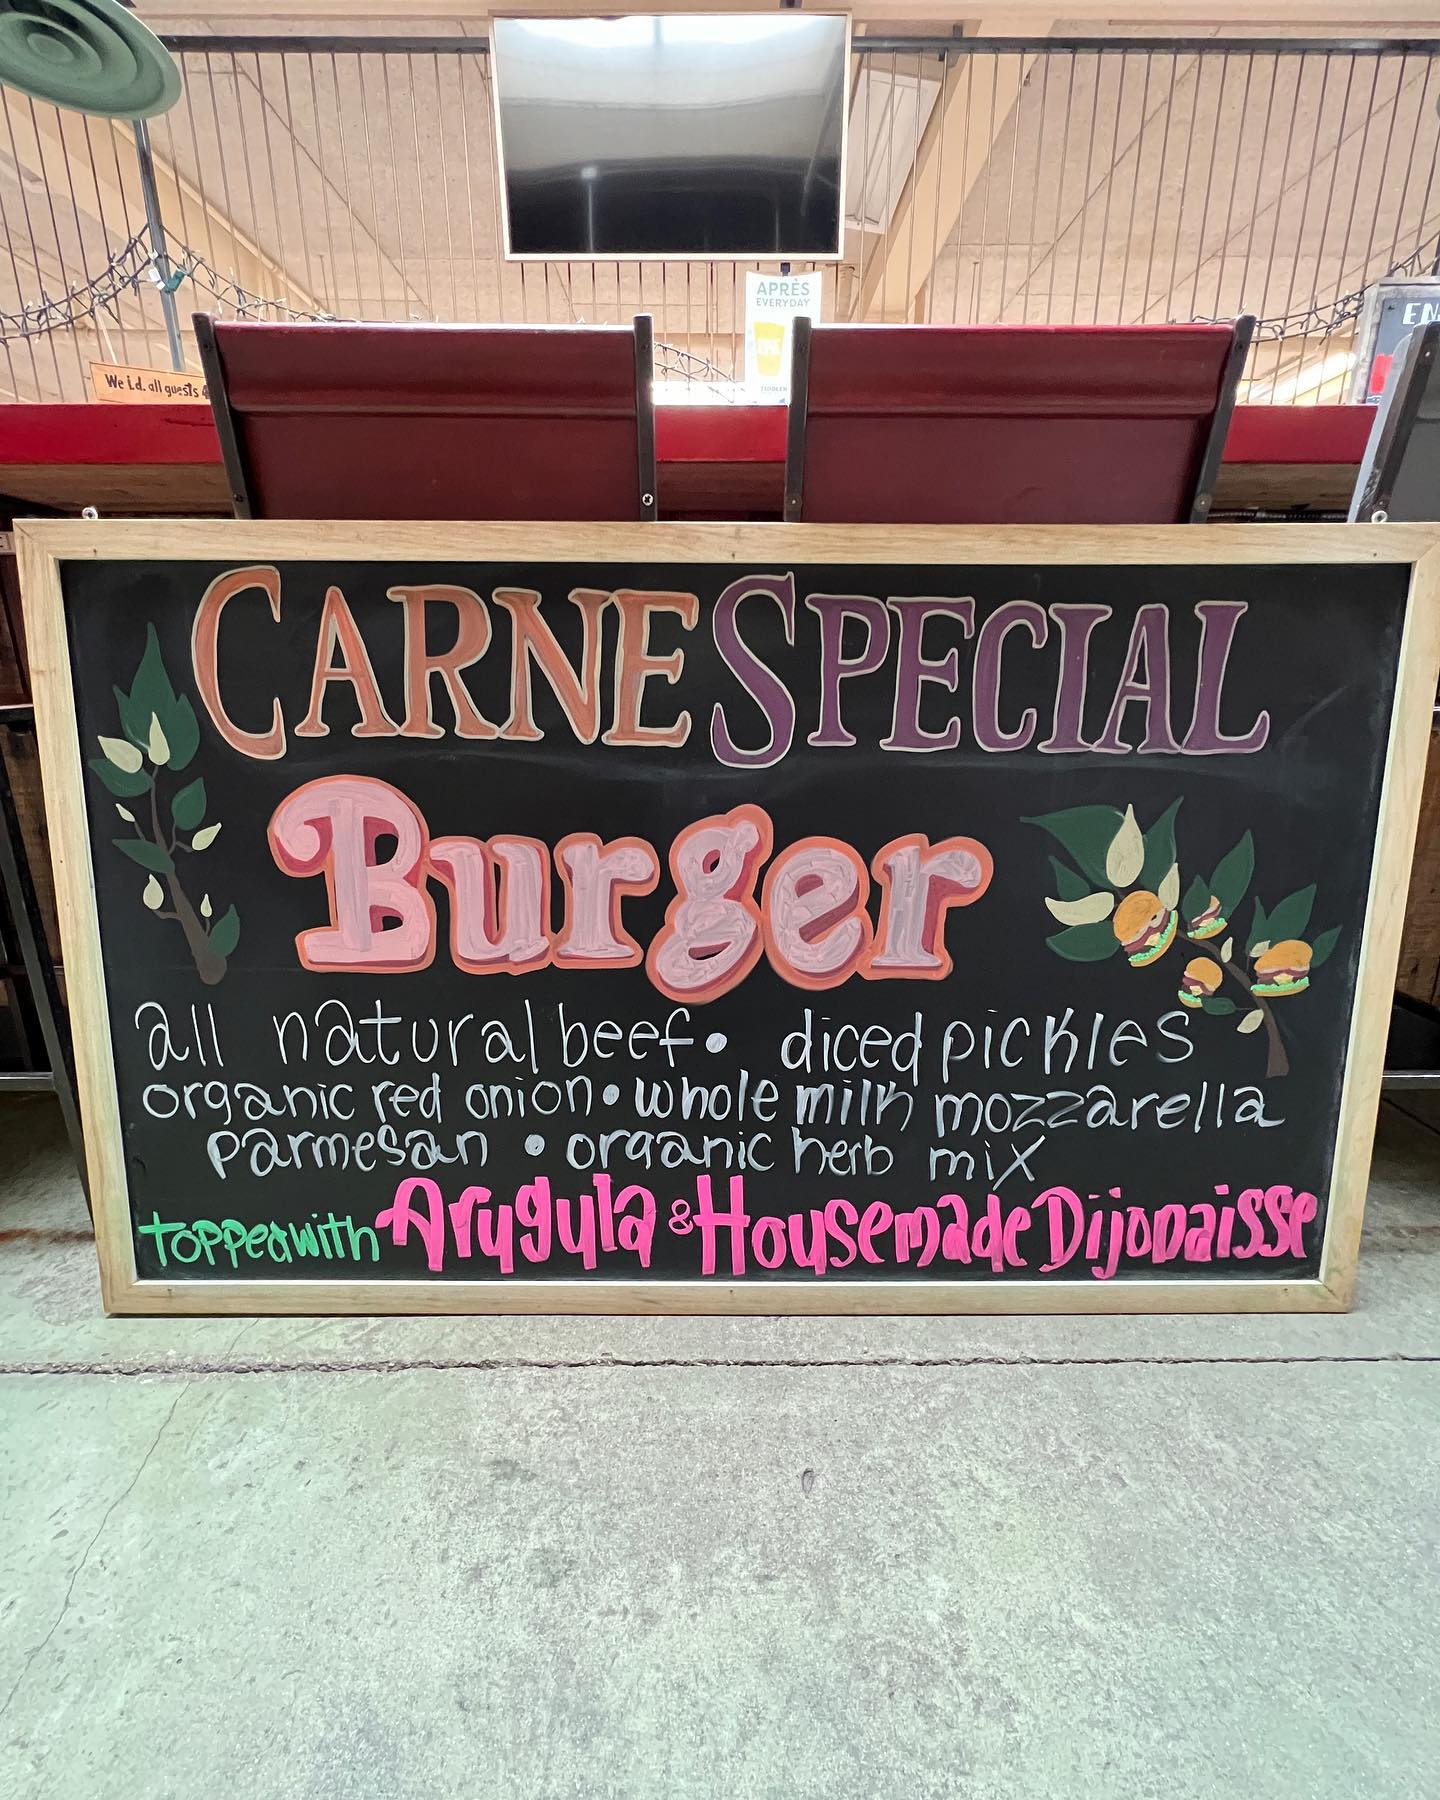 APRÈS
EVERYDAY
We i.d. all guests
EN
CARNE SPECIAL
Burger
all natural beef • diced pickles
organic red onion • whole milk mozzarella
parmesan • organic herb mix
topped with Arugula & Housemade Dijonaisse